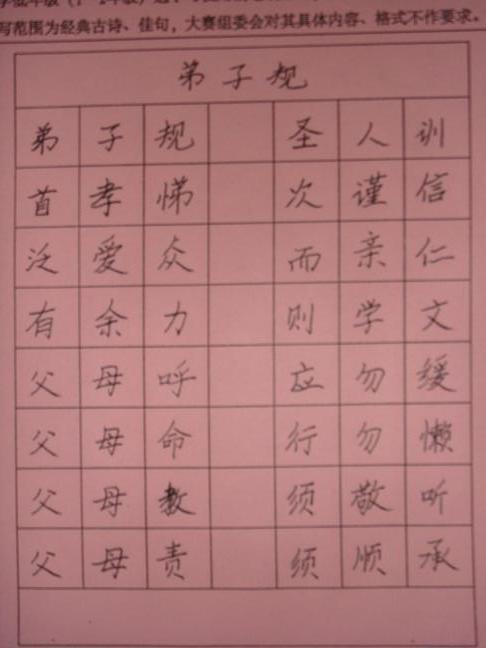 写范围为经典古诗、佳句，大赛组委会对其具体内容、格式不作要求。
弟子规
弟子规 圣人训
首孝悌 次谨信
泛爱众 而亲仁
有余力 则学文
父母呼 应勿缓
父母命 行勿懒
父母教 须敬听
父母责 须顺承